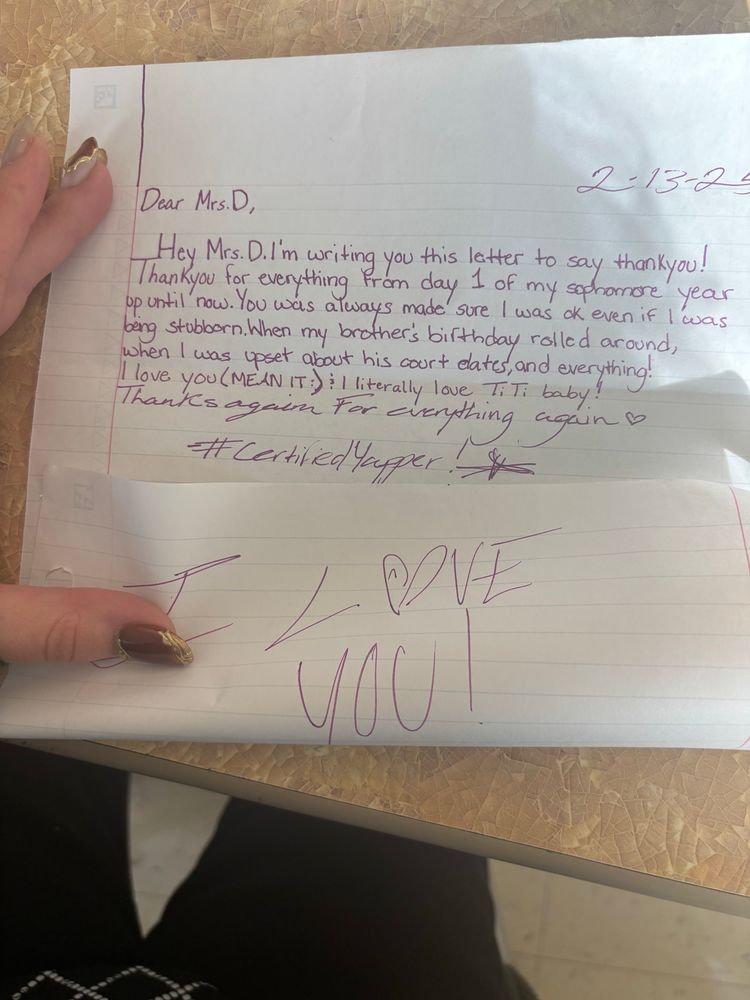 2-13-25
Dear Mrs.D,
Hey Mrs.D. I'm writing you this letter to say thankyou!
Thankyou for everything from day 1 of my sophomore year
up until now. You was always made sure I was ok even if I was
being stubborn. When my brother's birthday rolled around,
when I was upset about his court dates, and everything!
I love you (MEAN IT:) & I literally love TiTi baby!
Thanks again For everything again ♡
#CertifiedYapper!
I LOVE
YOU!